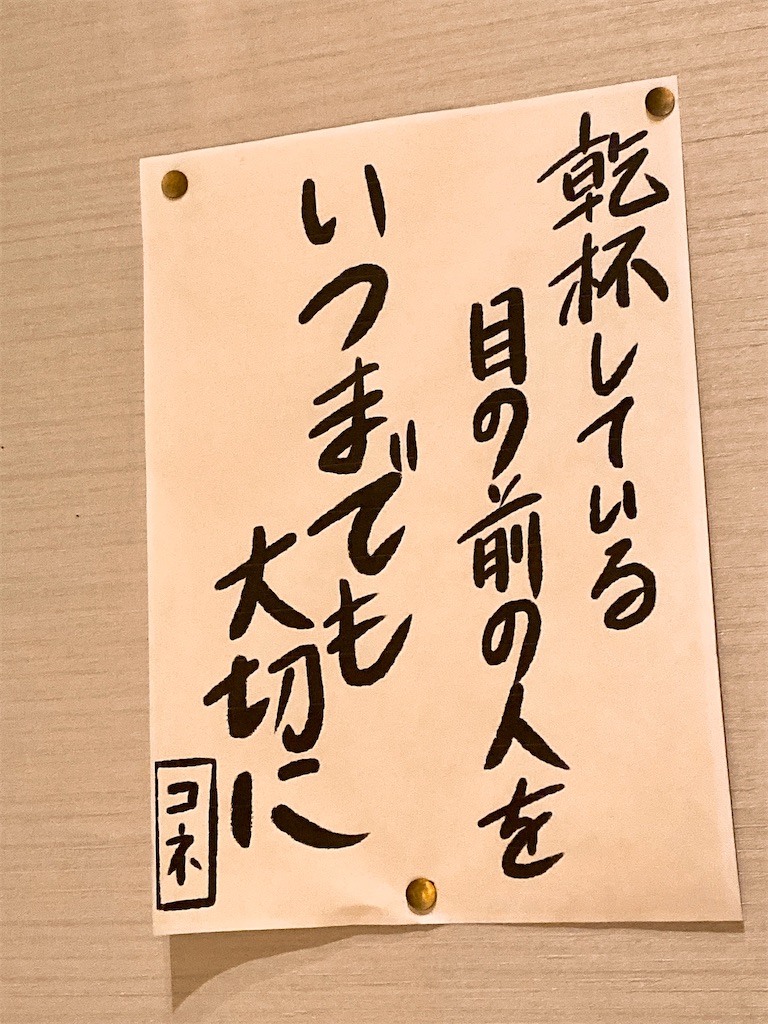 乾杯している
目の前の人を
いつまでも
大切に
コネ